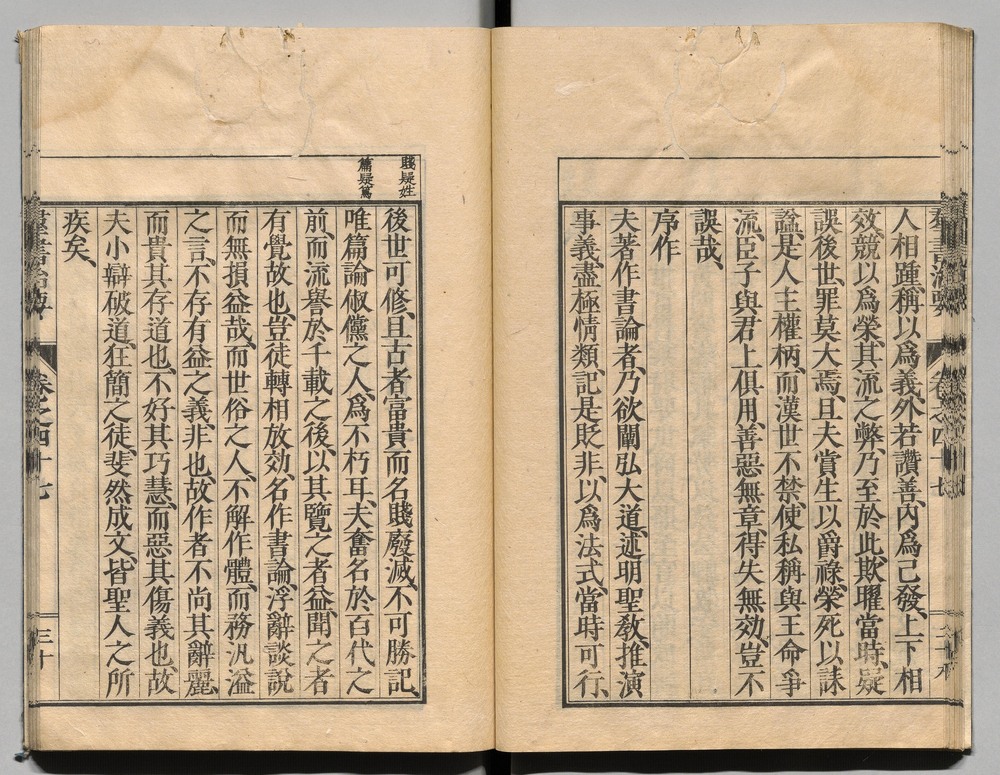 人相踵、稱以爲義、外若讚善、內爲己發、上下相
效、競以爲榮、其流之弊、乃至於此、欺曜當時、疑
誤後世、罪莫大焉、且夫賞生以爵祿、榮死以誄
諡、是人主權柄、而漢世不禁、使私稱與王命爭
流、臣子與君上俱用、善惡無章、得失無効、豈不
誤哉、
序作
夫著作書論者、乃欲闡弘大道、述明聖敎、推演
事義、盡極情類、記是貶非、以爲法式、當時可行、
賤疑姓
篇疑篤
後世可修、且古者富貴而名賤廢滅、不可勝記、
唯篇論俶儻之人、爲不朽耳、夫奮名於百代之
前、而流譽於千載之後、以其覽之者益、聞之者
有覺故也、豈徒轉相放効、名作書論、浮辭談說
而無損益哉、而世俗之人、不解作體、而務汎溢
之言、不存有益之義、非也、故作者不尚其辭麗、
而貴其存道也、不好其巧慧、而惡其傷義也、故
夫小辯破道、狂簡之徒、斐然成文、皆聖人之所
疾矣、
羣書治要 卷之四十七 三十